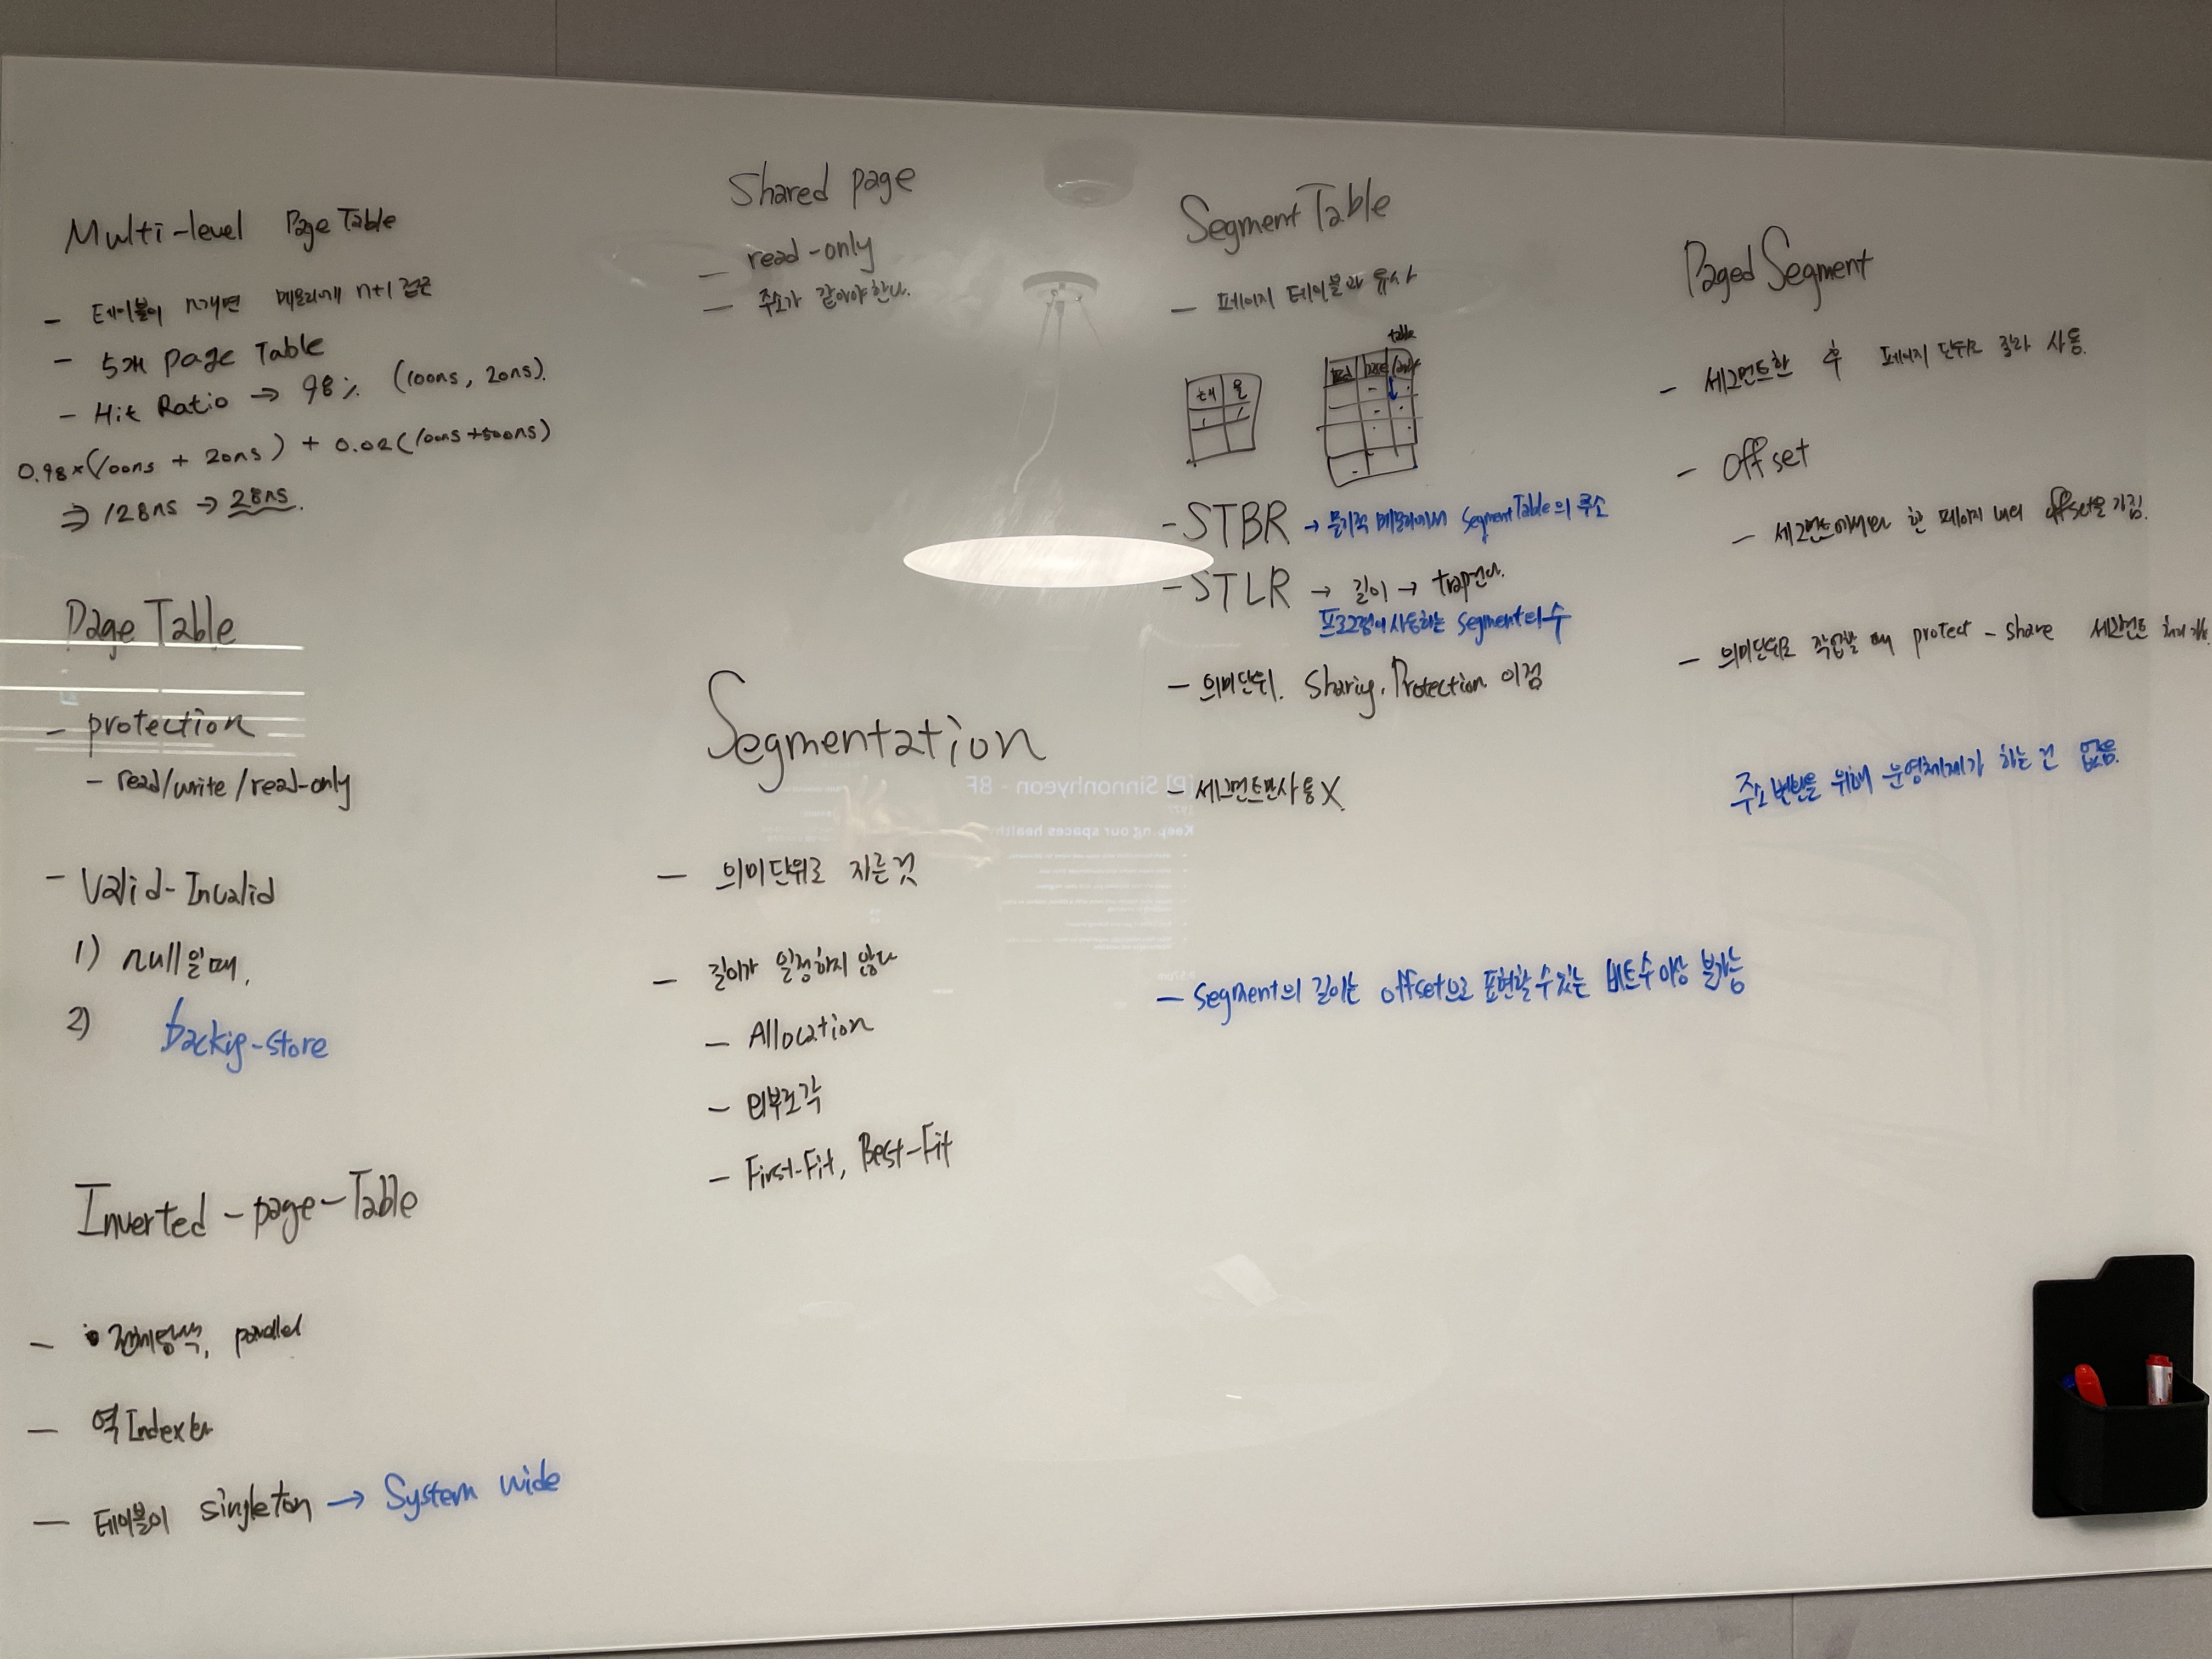 Multi-level Page Table
- 테이블이 n개면 메모리에 n+1 접근
- 5개 page Table
- Hit Ratio → 98% (100ns, 20ns).
0.98×(100ns + 20ns) + 0.02(100ns+500ns)
⇒ 128ns → 28ns.
Page Table
- protection
- read/write/read-only
- Valid-Invalid
1) null일때,
2) backig-store
Inverted-page-Table
- 전체탐색, parallel
- 역Index
- 테이블이 singleton → System wide
Shared page
- read-only
- 주소가 같아야한다.
Segmentation
- 의미단위로 자른것
- 길이가 일정하지 않다
- Allocation
- 외부조각
- First-Fit, Best-Fit
Segment Table
- 페이지 테이블과 유사
table
base
-STBR → 물리적 메모리에서 SegmentTable의 주소
-STLR → 길이 → trap된다.
프로그램이 사용하는 segment의 수
- 의미단위. Sharig, Protection 이점
- 세그먼트만사용 X.
- segment의 길이는 offset으로 표현할수있는 비트수 이상 불가능
Paged Segment
- 세그먼트한 후 페이지 단위로 잘라 사용.
- offset
- 세그먼트에서 한 페이지 내의 offset을 가짐.
- 의미단위로 작업할 때 protect - share 세그먼트
주소변환을 위해 운영체제가 하는 건 없음.
[P] Sinnonhyeon - 8F
Keeping our spaces health